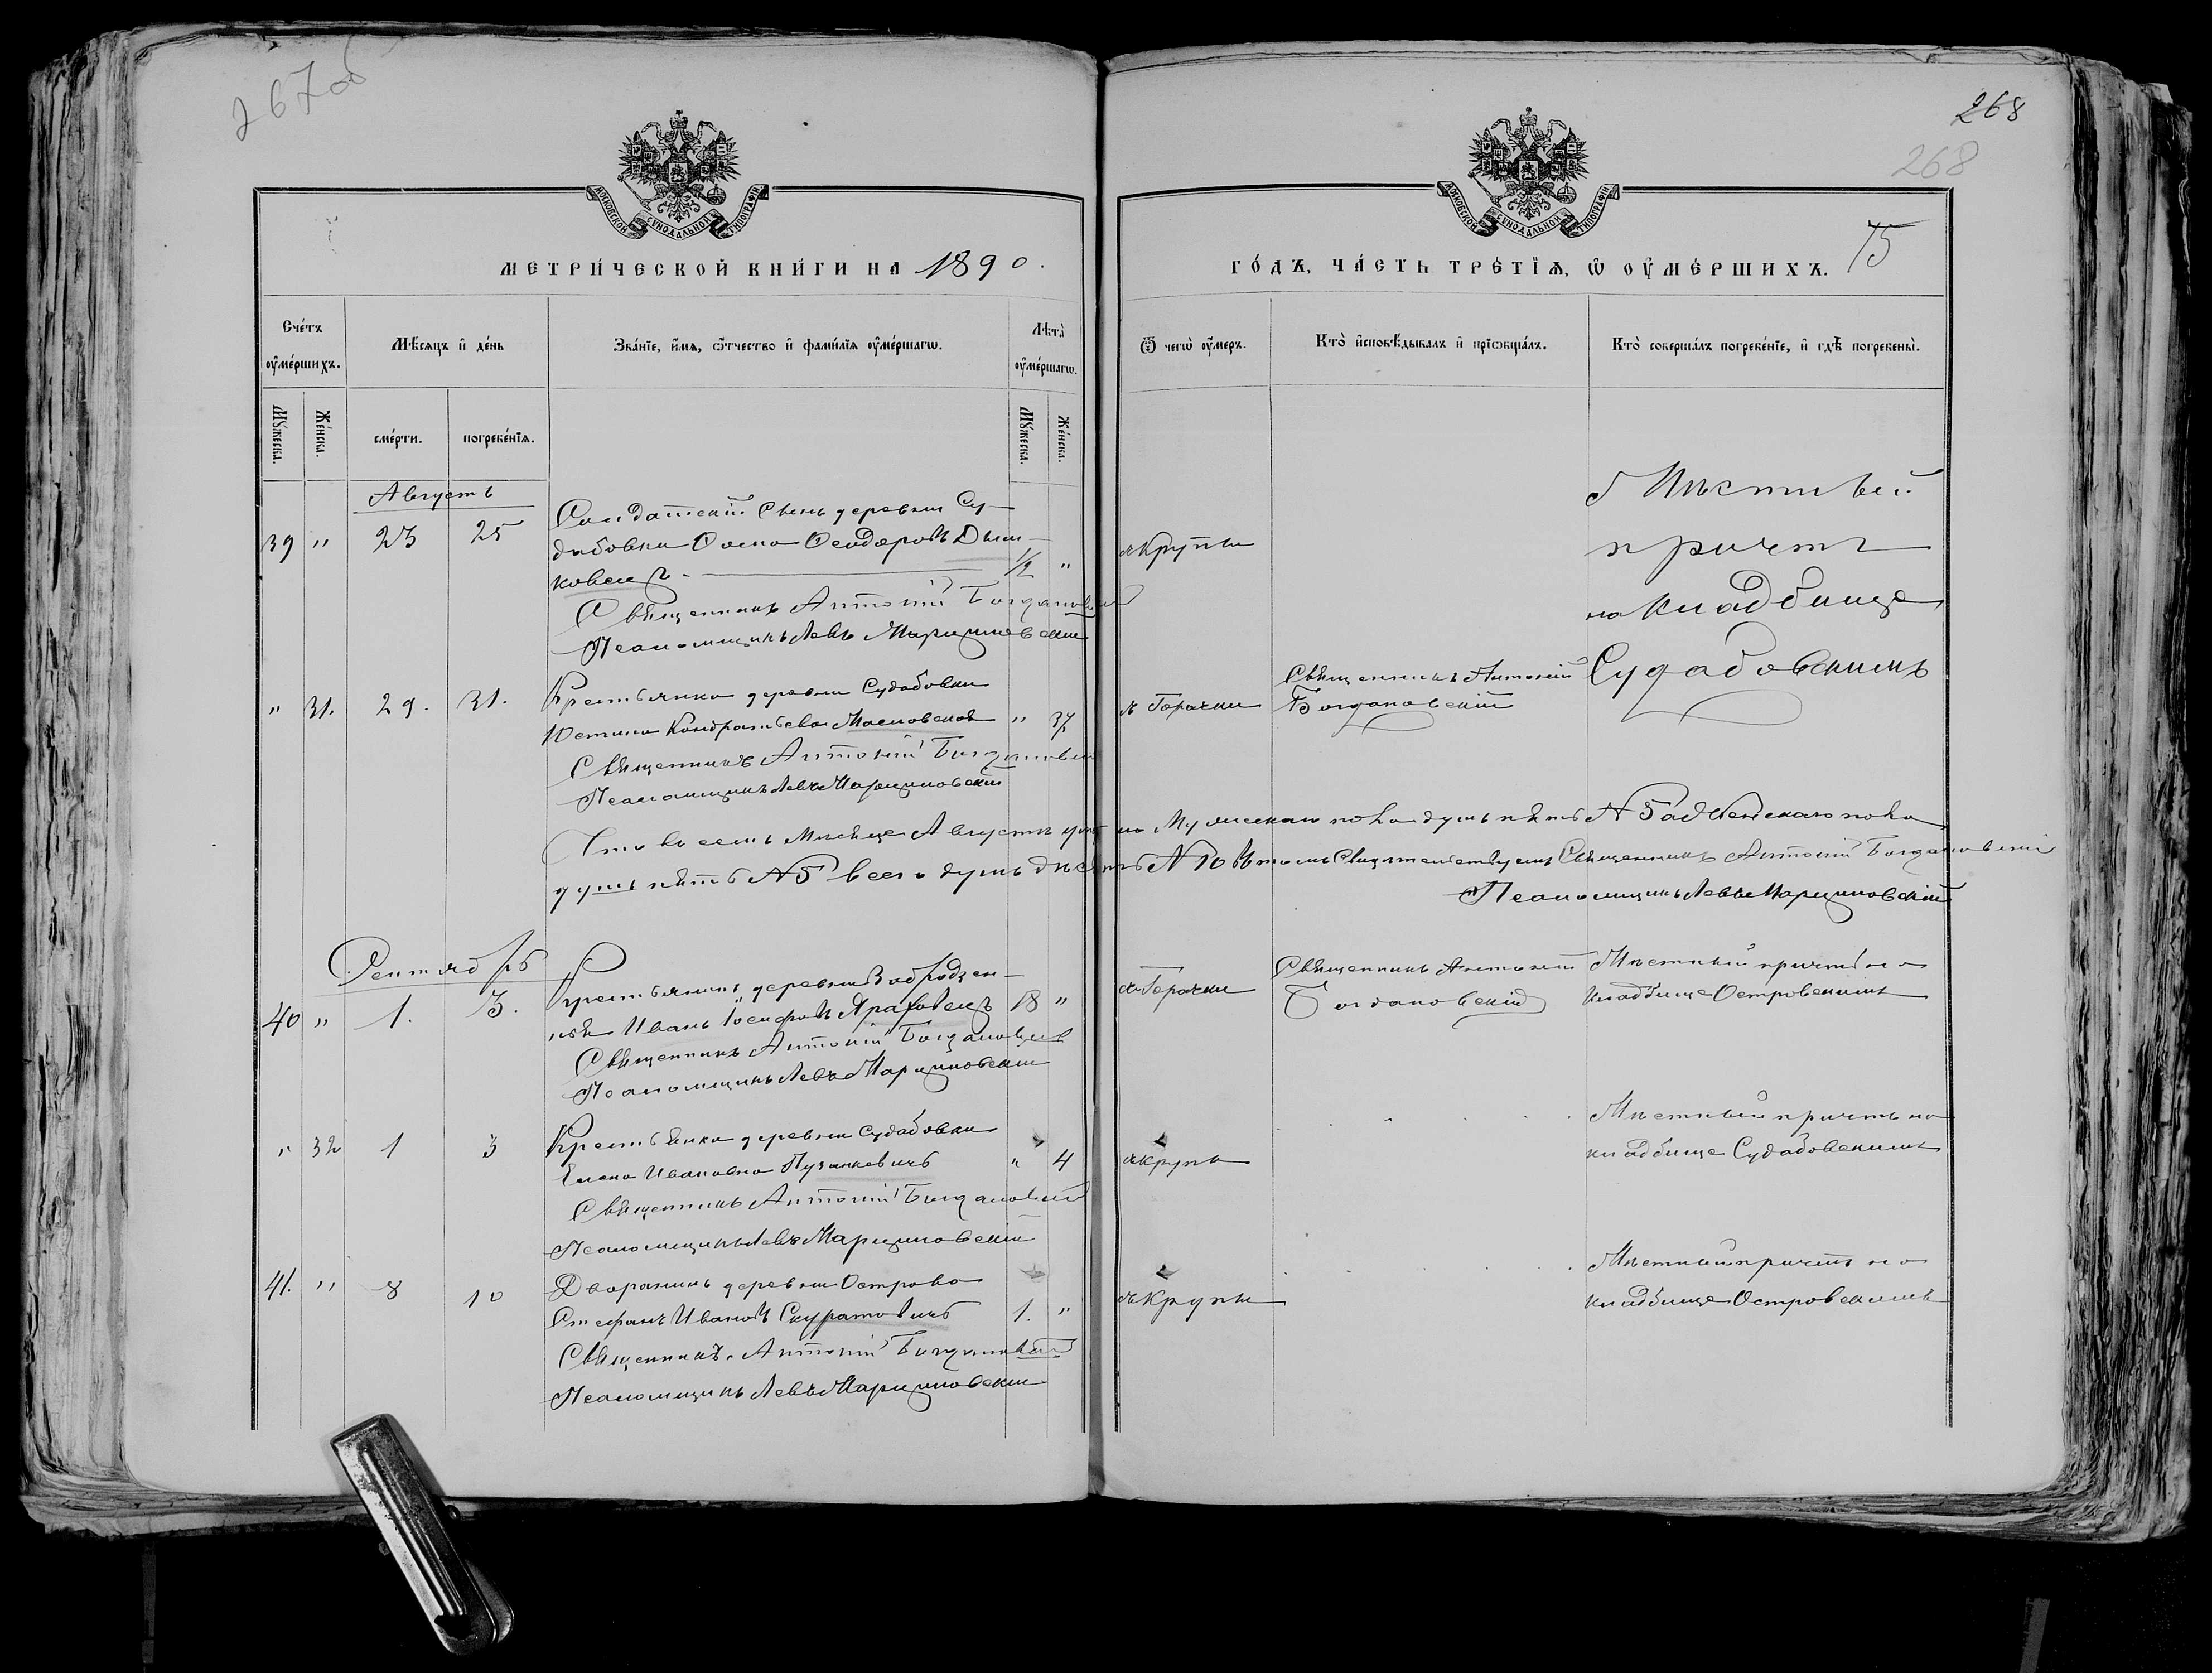 267об
268
268
МОСКОВСКОЙ СѴНОДАЛЬНОЙ ТИПОГРАФІИ
МОСКОВСКОЙ СѴНОДАЛЬНОЙ ТИПОГРАФІИ
МЕТРИ́ЧЕСКОЙ КНИ́ГИ НА 1890.
ГО́ДЪ, ЧА́СТЬ ТРЕ́ТІѦ, Ѡ҆ ОУ҆МЕ́РШИХЪ. 75
Сче́тъ оу҆ме́ршихъ.
Мѣ́сѧцъ и҆ де́нь
Зва́нїе, и҆́мѧ, ѻ҆́тчество и҆ фами́лїѧ оу҆ме́ршагѡ.
Лѣ́та оу҆ме́ршагѡ.
Ѿ чегѡ̀ оу҆́меръ.
Кто̀ и҆сповѣ́дывалъ и҆ прїѡбща́лъ.
Кто̀ соверша́лъ погребе́нїе, и҆ гдѣ̀ погребены̀.
Мꙋ́жеска.
Же́нска.
сме́рти.
погребе́нїѧ.
Мꙋ́жеска.
Же́нска.
Августъ
39 " 23 25
Солдатскій сынъ деревни Су-
дабовки Ѳома Ѳеодоровъ
1/2 "
Священникъ Антоній Богдановскій
Псаломщикъ Левъ Марциновскій
отъ Крупы
Мѣстный
причтъ
на кладбище
Судабовскимъ
" 31. 29. 31.
Крестьянка деревни Судабовки
Юстина Кондратьева Масловская " 37
Священникъ Антоній Богдановскій
Псаломщикъ Левъ Марциновскій
отъ Горячки
Священникъ Антоній
Богдановскій
Что въ семъ мѣсяце Августѣ умерло Мужескаго пола душъ пять № 5 а Женскаго пола
душъ пять № 5 всего душъ десять № 10 въ томъ свидѣтельствуемъ Священникъ Антоній Богдановскій
Псаломщикъ Левъ Марциновскій
Сентябрь
40 " 1. 3.
Крестьянинъ деревни
Иванъ Іосифовъ 18 "
Священникъ Антоній Богдановскій
Псаломщикъ Левъ Марциновскій
отъ Горячки
Священникъ Антоній
Богдановскій
Мѣстный причтъ на
кладбище Островскимъ
" 32 1 3
Крестьянка деревни Судабовки
Елена Ивановна Пузанкевичъ " 4
Священникъ Антоній Богдановскій
Псаломщикъ Левъ Марциновскій
отъ крупа
Мѣстный причтъ на
кладбище Судабовскимъ
41. " 8 10
Дворянинъ деревни Острова
Стефанъ Ивановъ Скуратовичъ 1. "
Священникъ Антоній Богдановскій
Псаломщикъ Левъ Марциновскій
отъ Крупы
Мѣстный причтъ на
кладбище Островскимъ